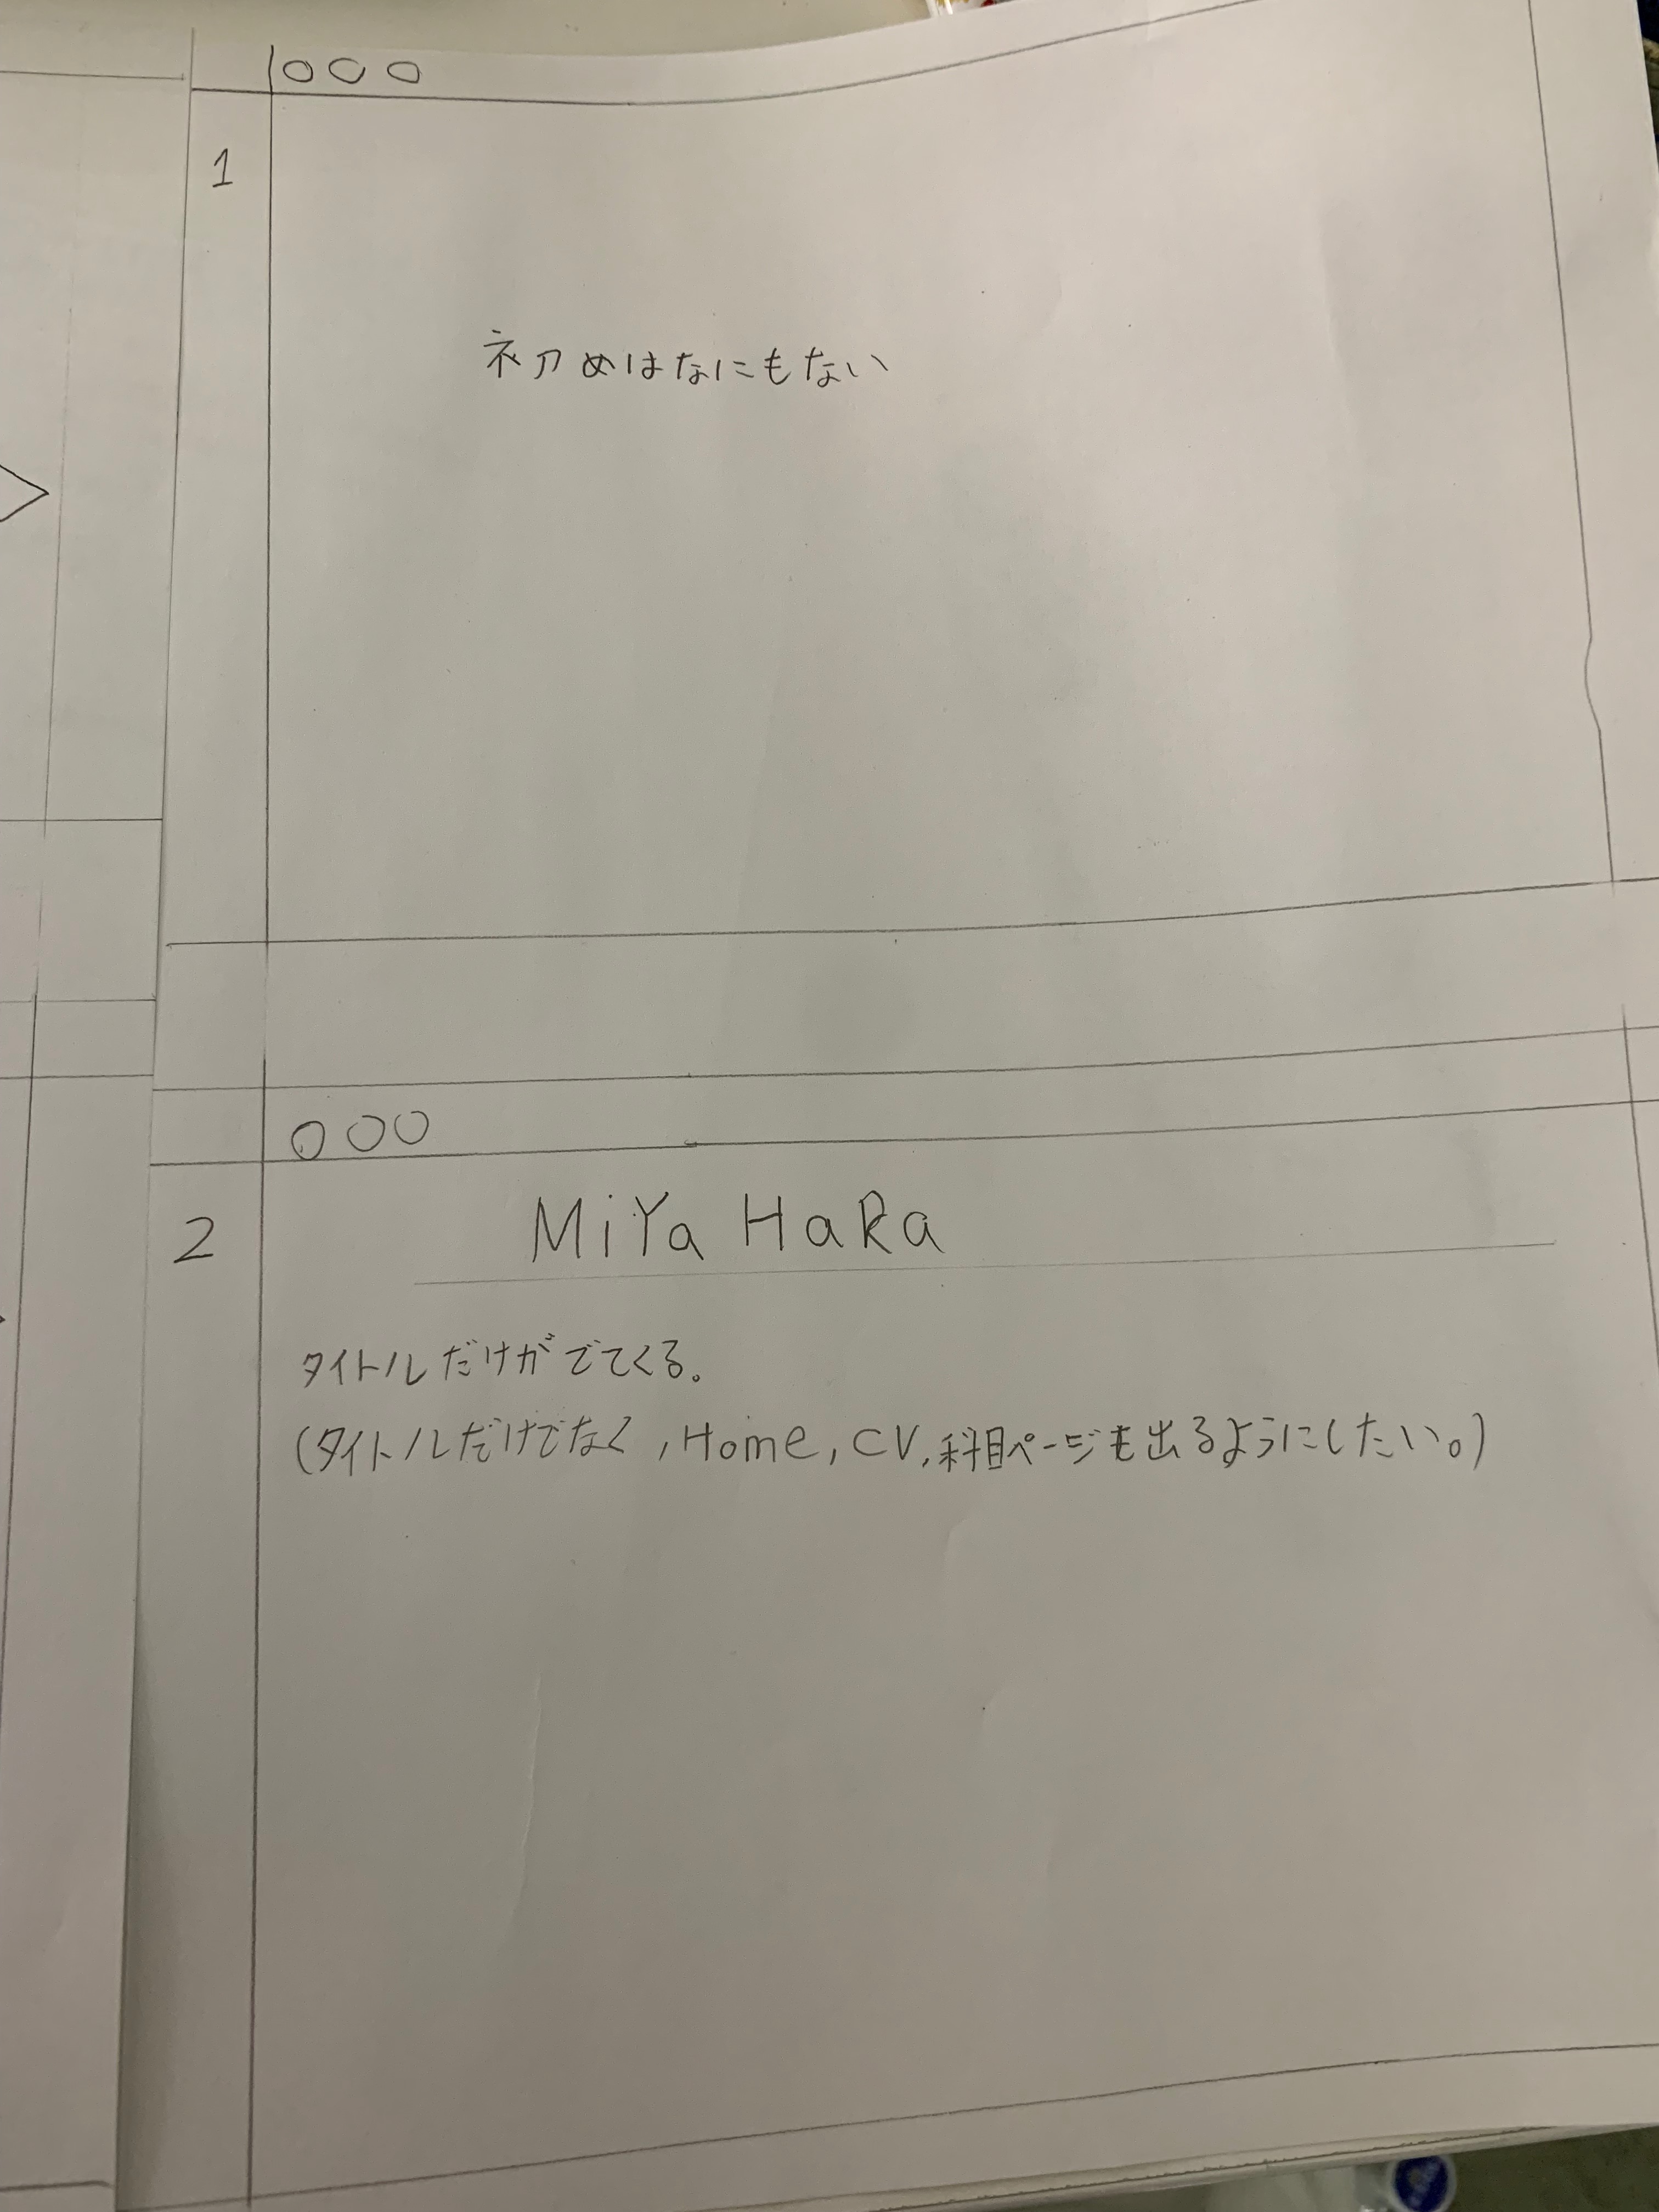 000
1
初めはなにもない
000
2
MiYa HaRa
タイトルだけがでてくる。
(タイトルだけでなく,Home,CV,科目ページも出るようにしたい。)